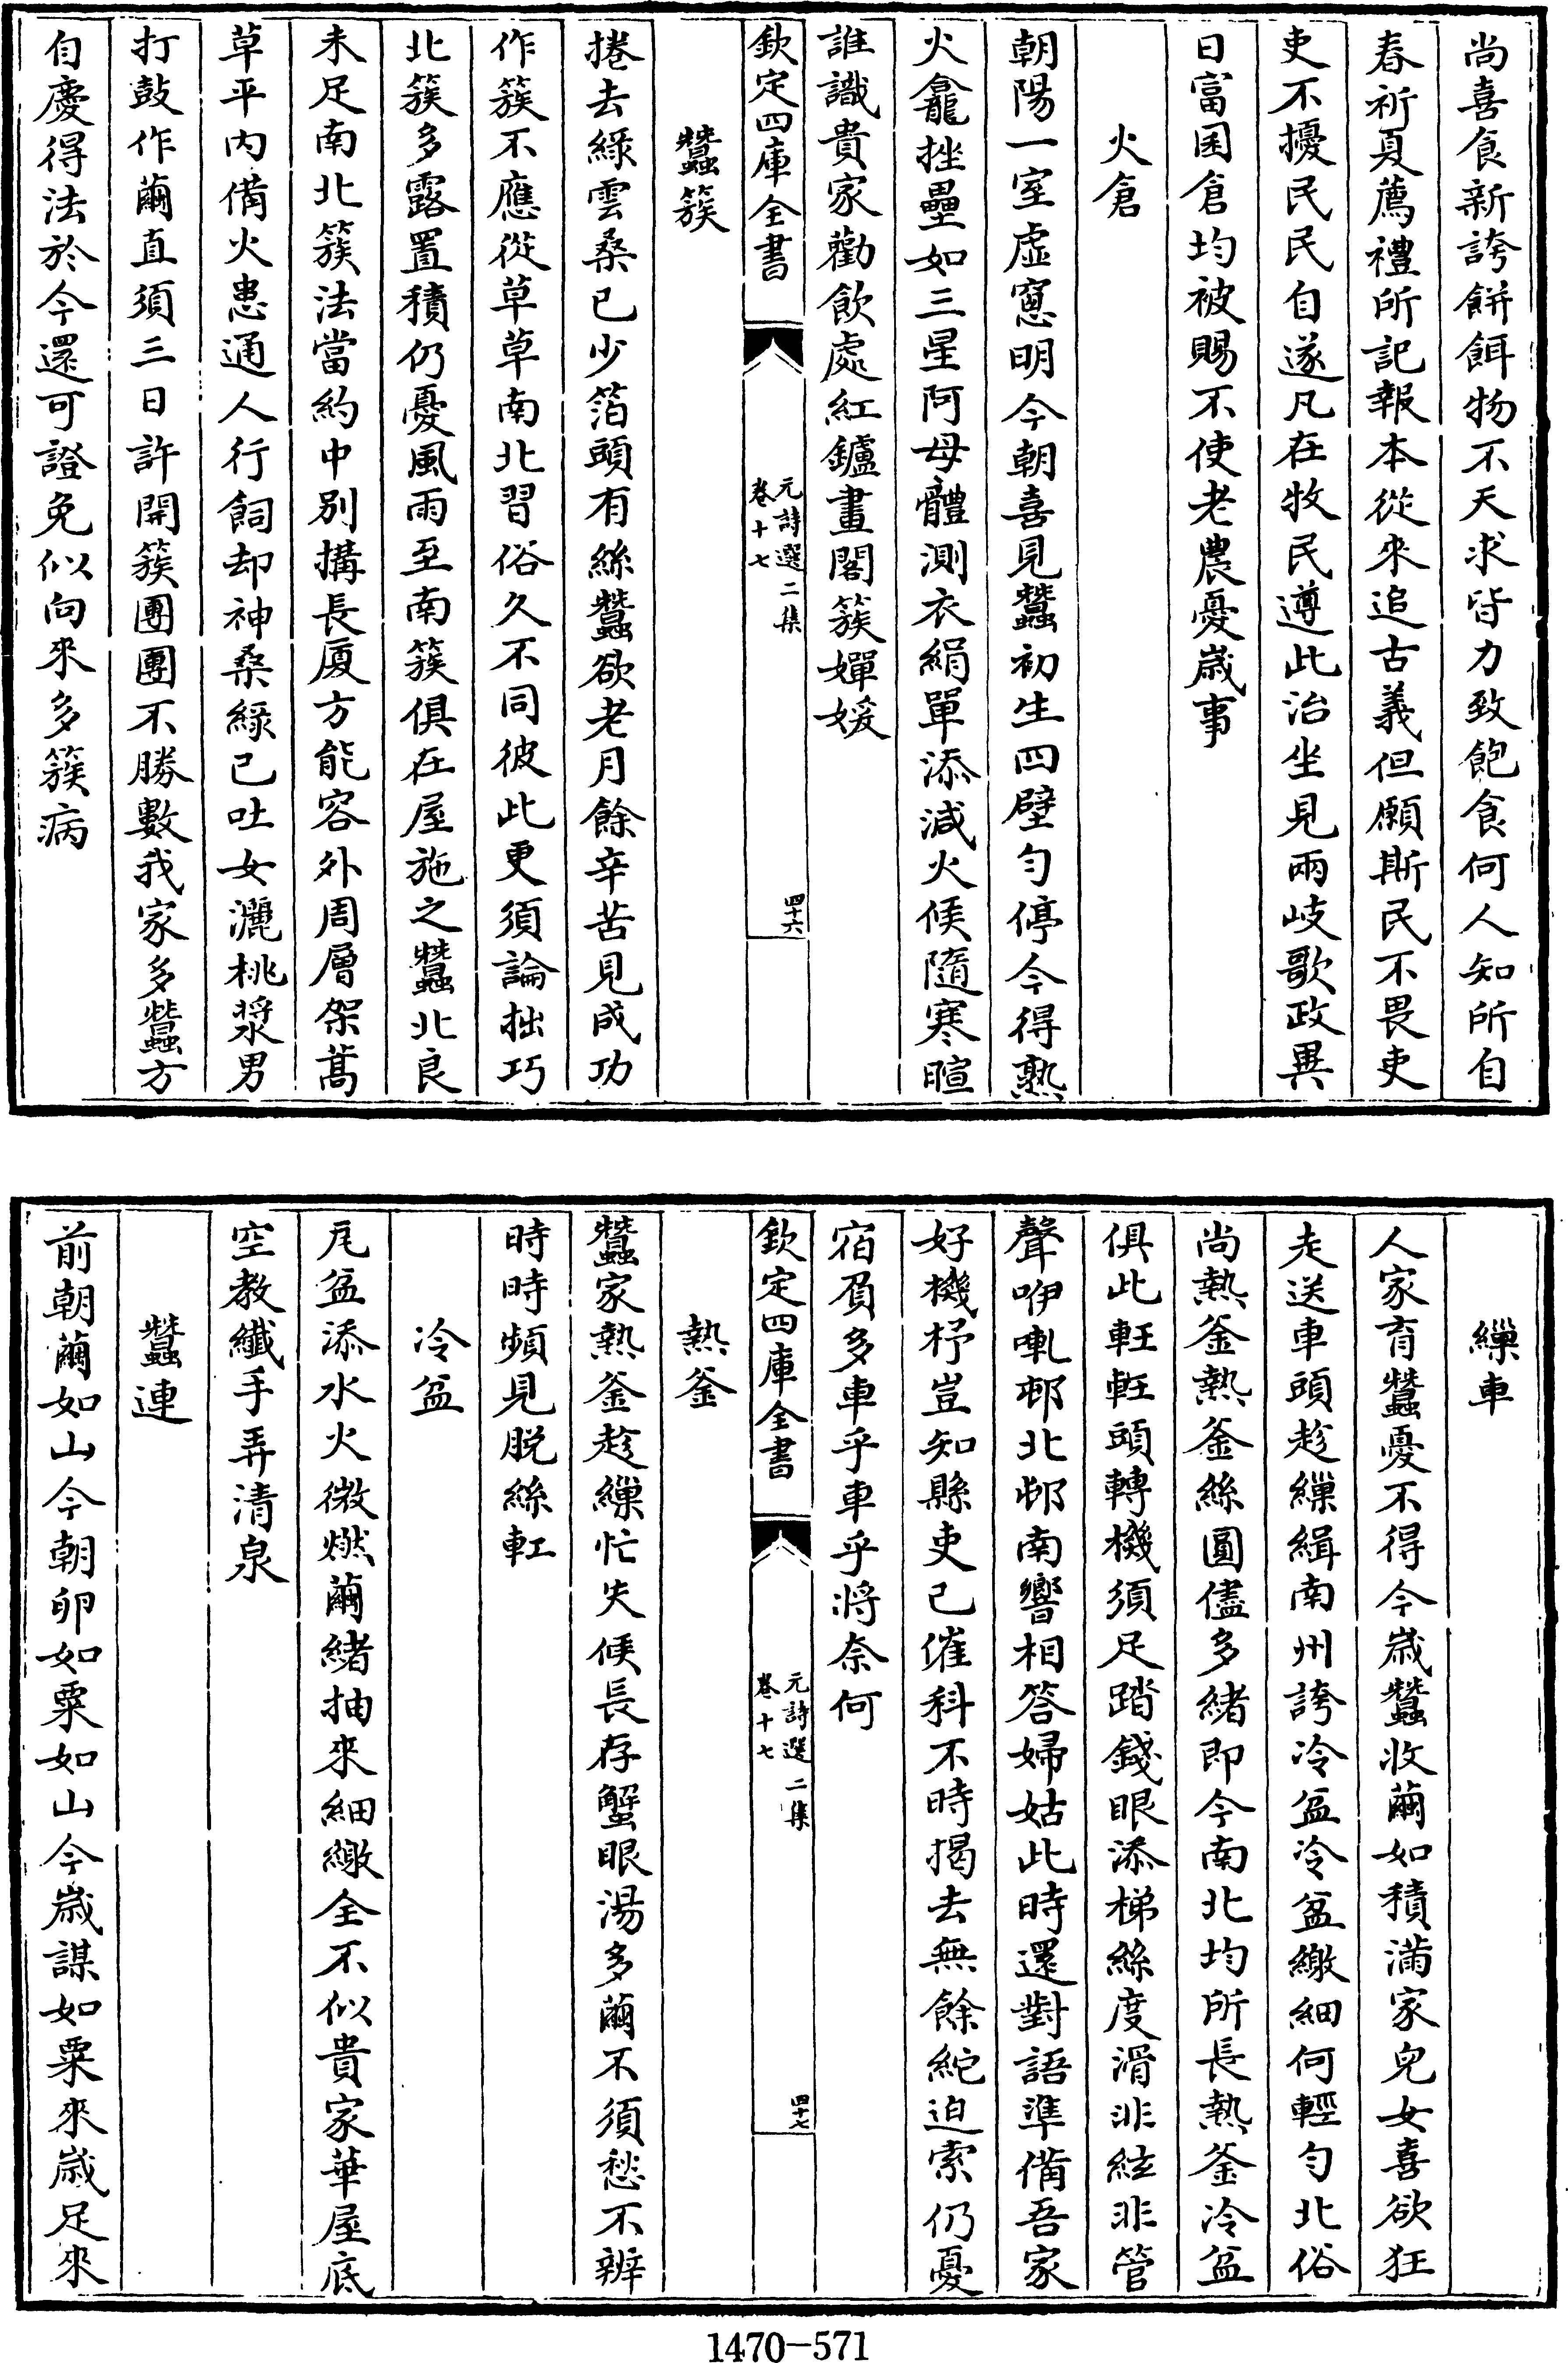 尚喜食新誇餅餌物不天求皆力致飽食何人知所自
春祈夏薦禮所記報本從來追古義但願斯民不畏吏
吏不擾民民自遂凡在牧民遵此治坐見兩岐歌政異
日富囷倉均被賜不使老農憂歳事
火倉
朝陽一室虚窻明今朝喜見蠶初生四壁勻停今得熟
火龕挫壘如三星阿母體測衣絹單添減火候隨寒暄
誰識貴家勸飲處紅鑪畫閣簇嬋媛
欽定四庫全書
元詩選二集
卷十七
四十六
蠶簇
捲去緑雲桑已少箔頭有絲蠶欲老月餘辛苦見成功
作簇不應從草草南北習俗久不同彼此更須論拙巧
北簇多露置積仍憂風雨至南簇俱在屋施之蠶北良
未足南北簇法當約中別搆長廈方能容外周層架蒿
草平内備火患通人行飼却神桑緑已吐女灑桃漿男
打鼓作繭直須三日許開簇團團不勝數我家多蠶方
自慶得法於今還可證免似向來多簇病
繅車
人家育蠶憂不得今歳蠶收繭如積滿家兒女喜欲狂
走送車頭趁繅緝南州誇冷盆冷盆繳細何輕勻北俗
尚熱釜熱釜絲圓儘多緒即今南北均所長熱釜冷盆
俱此軖軖頭轉機須足踏錢眼添梯絲度滑非絃非管
聲咿軋邨北邨南響相答婦姑此時還對語準備吾家
好機杼豈知縣吏已催科不時揭去無餘紽迫索仍憂
宿負多車乎車乎將奈何
欽定四庫全書
元詩選二集
卷十七
四十七
熱釜
蠶家熱釜趁繅忙火候長存蟹眼湯多繭不須愁不辨
時時頻見脱絲軖
冷盆
瓦盆添水火微燃繭緒抽來細繳全不似貴家華屋底
空教纎手弄清泉
蠶連
前朝繭如山今朝卵如粟如山今歳謀如粟來歳足來
1470-571